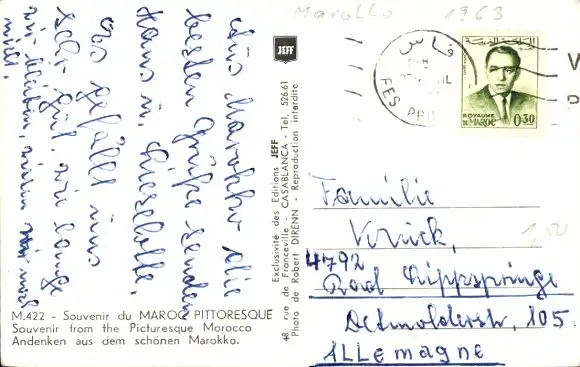 Marokko 1963
Aus Marokko die
besten Grüße senden
Hans u. Lieselotte.
Es gefällt uns
sehr gut. Wie lange
wir bleiben, wissen wir noch
nicht.
M.422 - Souvenir du MAROC PITTORESQUE
Souvenir from the Picturesque Morocco
Andenken aus dem schönen Marokko.
JEFF
Exclusivité des Editions JEFF
48, rue de Franceville - CASABLANCA - Tel. 526.61
Photo de Robert DIRENN - Reproduction interdite
فاس
FES PR
المملكة المغربية
ROYAUME
DU MAROC
0,30
Familie
4792
Bad Lippspringe
Detmolderstr. 105.
Allemagne
1,50